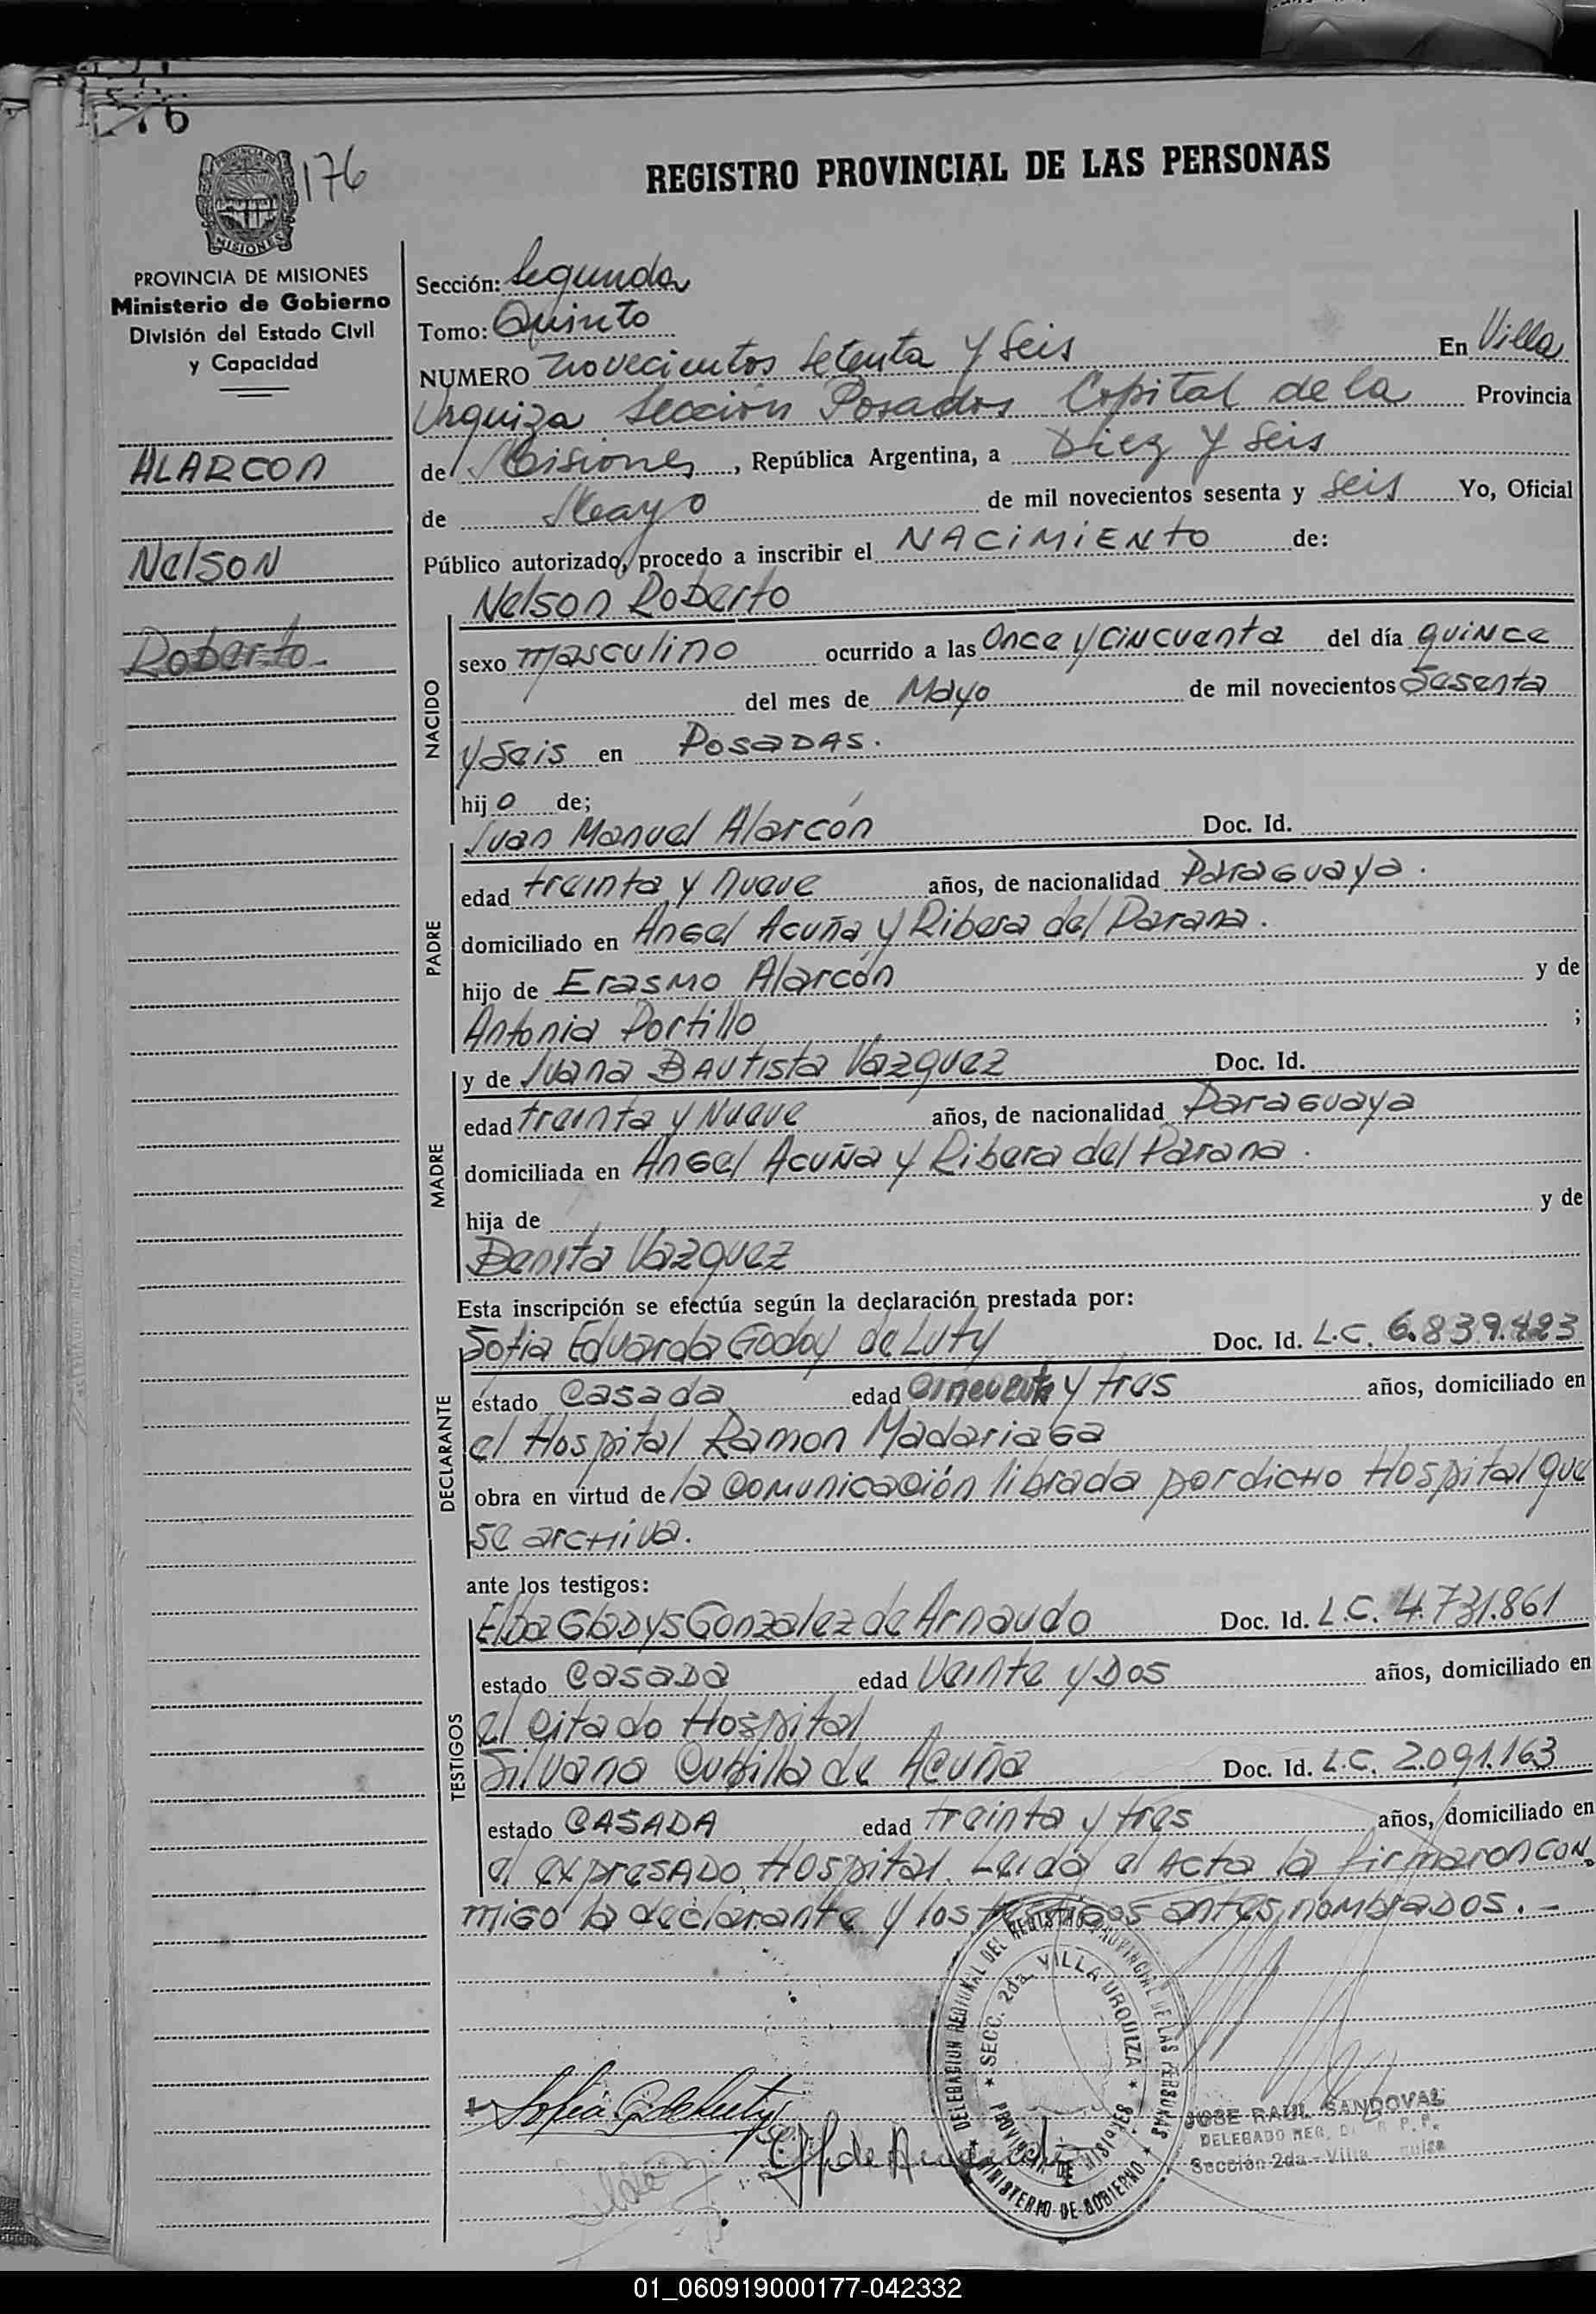 176
REGISTRO PROVINCIAL DE LAS PERSONAS
PROVINCIA DE MISIONES
Ministerio de Gobierno
División del Estado Civil
y Capacidad
ALARCON
Nelson
Roberto.
Sección: Segunda
Tomo: Quinto
NUMERO novecientos setenta y seis En Villa
Urquiza Sección Posadas Capital de la Provincia
de Misiones, República Argentina, a Diez y seis
de Mayo de mil novecientos sesenta y seis Yo, Oficial
Público autorizado, procedo a inscribir el NACIMIENTO de:
NACIDO
Nelson Roberto
sexo masculino ocurrido a las Once y cincuenta del día quince
del mes de Mayo de mil novecientos Sesenta
y Seis en POSADAS.
hijo de;
PADRE
Juan Manuel Alarcón Doc. Id.
edad treinta y nueve años, de nacionalidad Paraguaya.
domiciliado en Angel Acuña y Ribera del Parana.
hijo de Erasmo Alarcón y de
Antonia Portillo ;
MADRE
y de Juana Bautista Vazquez Doc. Id.
edad treinta y Nueve años, de nacionalidad Paraguaya
domiciliada en Angel Acuña y Ribera del Parana.
hija de y de
Benita Vazquez
Esta inscripción se efectúa según la declaración prestada por:
DECLARANTE
Sofia Eduarda Godoy de Luty Doc. Id. L.C. 6.839.423
estado Casada edad cincuenta y tres años, domiciliado en
el Hospital Ramon Madariaga
obra en virtud de la comunicación librada por dicho Hospital que
se archiva.
ante los testigos:
TESTIGOS
Elba Gladys Gonzalez de Arnaudo Doc. Id. L.C. 4.731.861
estado Casada edad Veinte y Dos años, domiciliado en
el citado Hospital
Silvana Cubilla de Acuña Doc. Id. L.C. 2.091.163
estado CASADA edad treinta y tres años, domiciliado en
el expresado Hospital. Leida el acta la firmaron con
migo la declarante y los testigos antes nombrados. -
DELEGACION REGIONAL DEL REGISTRO PROVINCIAL DE LAS PERSONAS
SECC. 2da. VILLA URQUIZA
PROVINCIA DE MISIONES
MINISTERIO DE GOBIERNO
JOSE RAUL SANDOVAL
DELEGADO REG.
Sección 2da - Villa
01_060919000177-042332